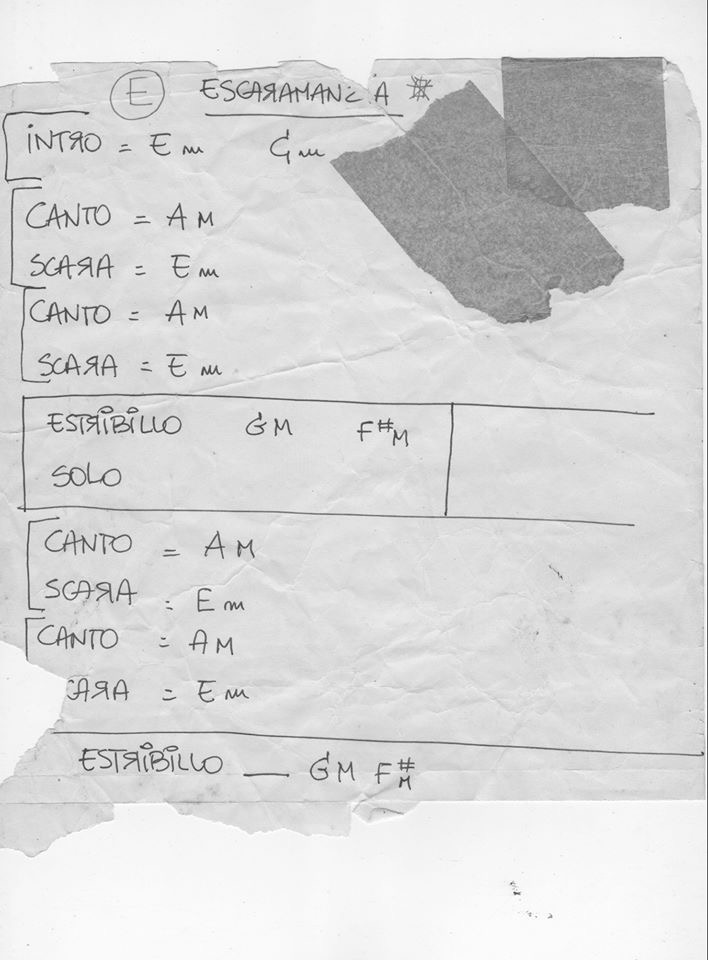 E ESCARAMANZA *
INTRO = Em Gm
CANTO = AM
SCARA = Em
CANTO = AM
SCARA = Em
ESTRIBILLO GM F#M
SOLO
CANTO = AM
SCARA = Em
CANTO = AM
CARA = Em
ESTRIBILLO — GM F#M